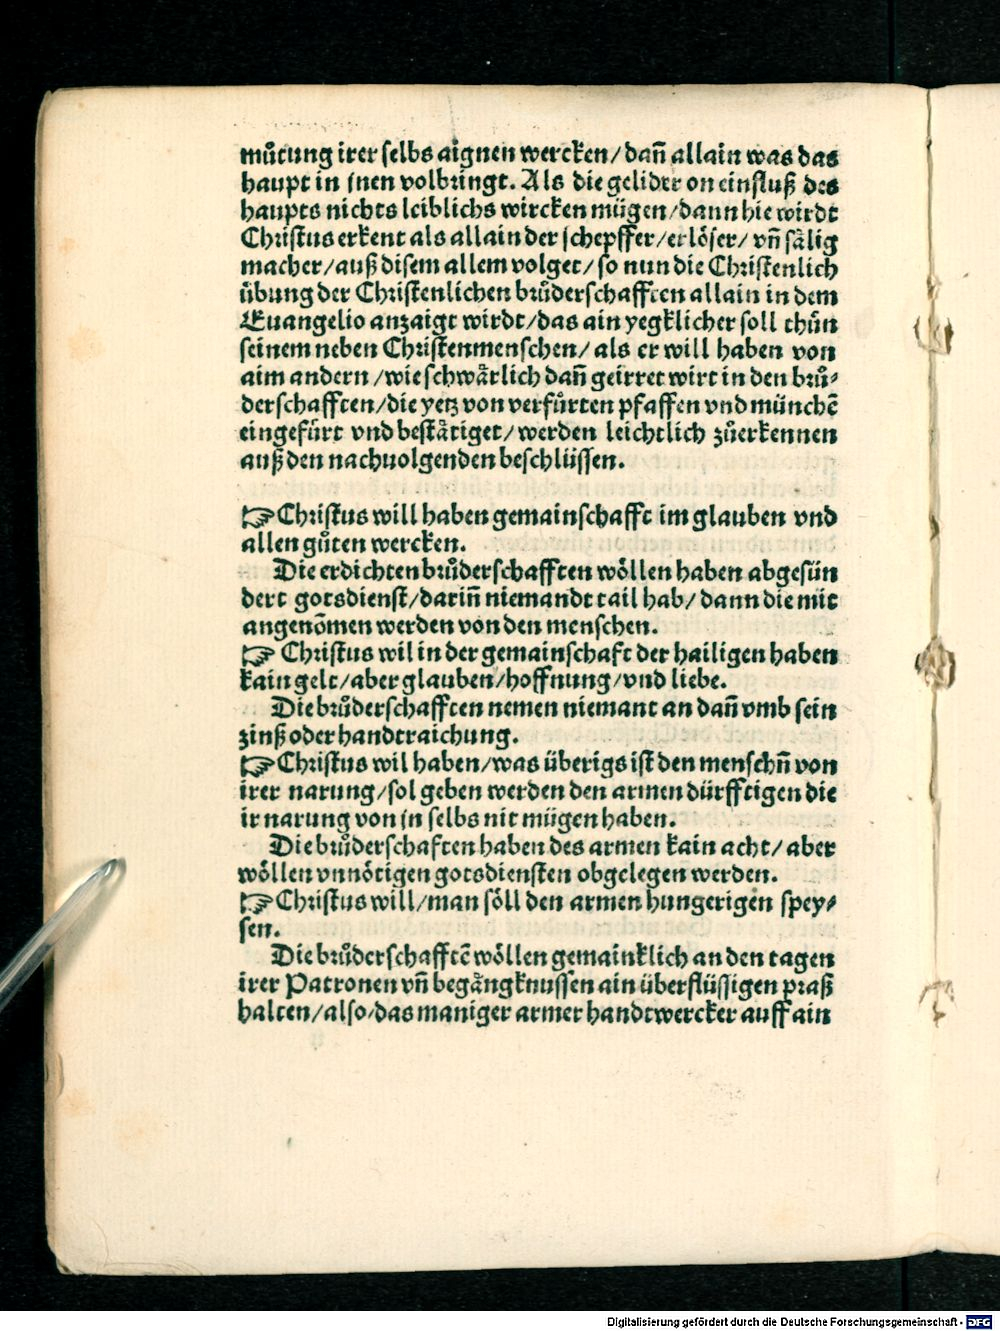 můtung irer selbs aignen wercken/dañ allain was das
haupt in jnen volbringt. Als die gelider on einfluß des
haupts nichts leiblichs wircken mügen/dann hie wirdt
Christus erkent als allain der schepffer/erlöser/vñ sälig
macher/auß disem allem volget/so nun die Christenlich
übung der Christenlichen brůderschafften allain in dem
Euangelio anzaigt wirdt/das ain yegklicher soll thůn
seinem neben Christenmenschen/als er will haben von
aim andern/wie schwärlich dañ geirret wirt in den brů⸗
derschafften/die yetz von verfůrten pfaffen vnd münchē
eingefürt vnd bestätiget/werden leichtlich zůerkennen
auß den nachuolgenden beschlüssen.
☞ Christus will haben gemainschafft im glauben vnd
allen gůten wercken.
Die erdichten brůderschafften wöllen haben abgesün
dert gotsdienst/dariñ niemandt tail hab/dann die mit
angenōmen werden von den menschen.
☞ Christus wil in der gemainschaft der hailigen haben
kain gelt/aber glauben/hoffnung/vnd liebe.
Die brůderschafften nemen niemant an dañ vmb sein
zinß oder handtraichung.
☞ Christus wil haben/was überigs ist den menschñ von
irer narung/sol geben werden den armen dürfftigen die
ir narung von jn selbs nit mügen haben.
Die brůderschaften haben des armen kain acht/aber
wöllen vnnötigen gotsdiensten obgelegen werden.
☞ Christus will/man söll den armen hungerigen spey⸗
sen.
Die brůderschafftē wöllen gemainklich an den tagen
irer Patronen vñ begängknussen ain überflüssigen praß
halten/also/das maniger armer handtwercker auff ain
Digitalisierung gefördert durch die Deutsche Forschungsgemeinschaft - DFG